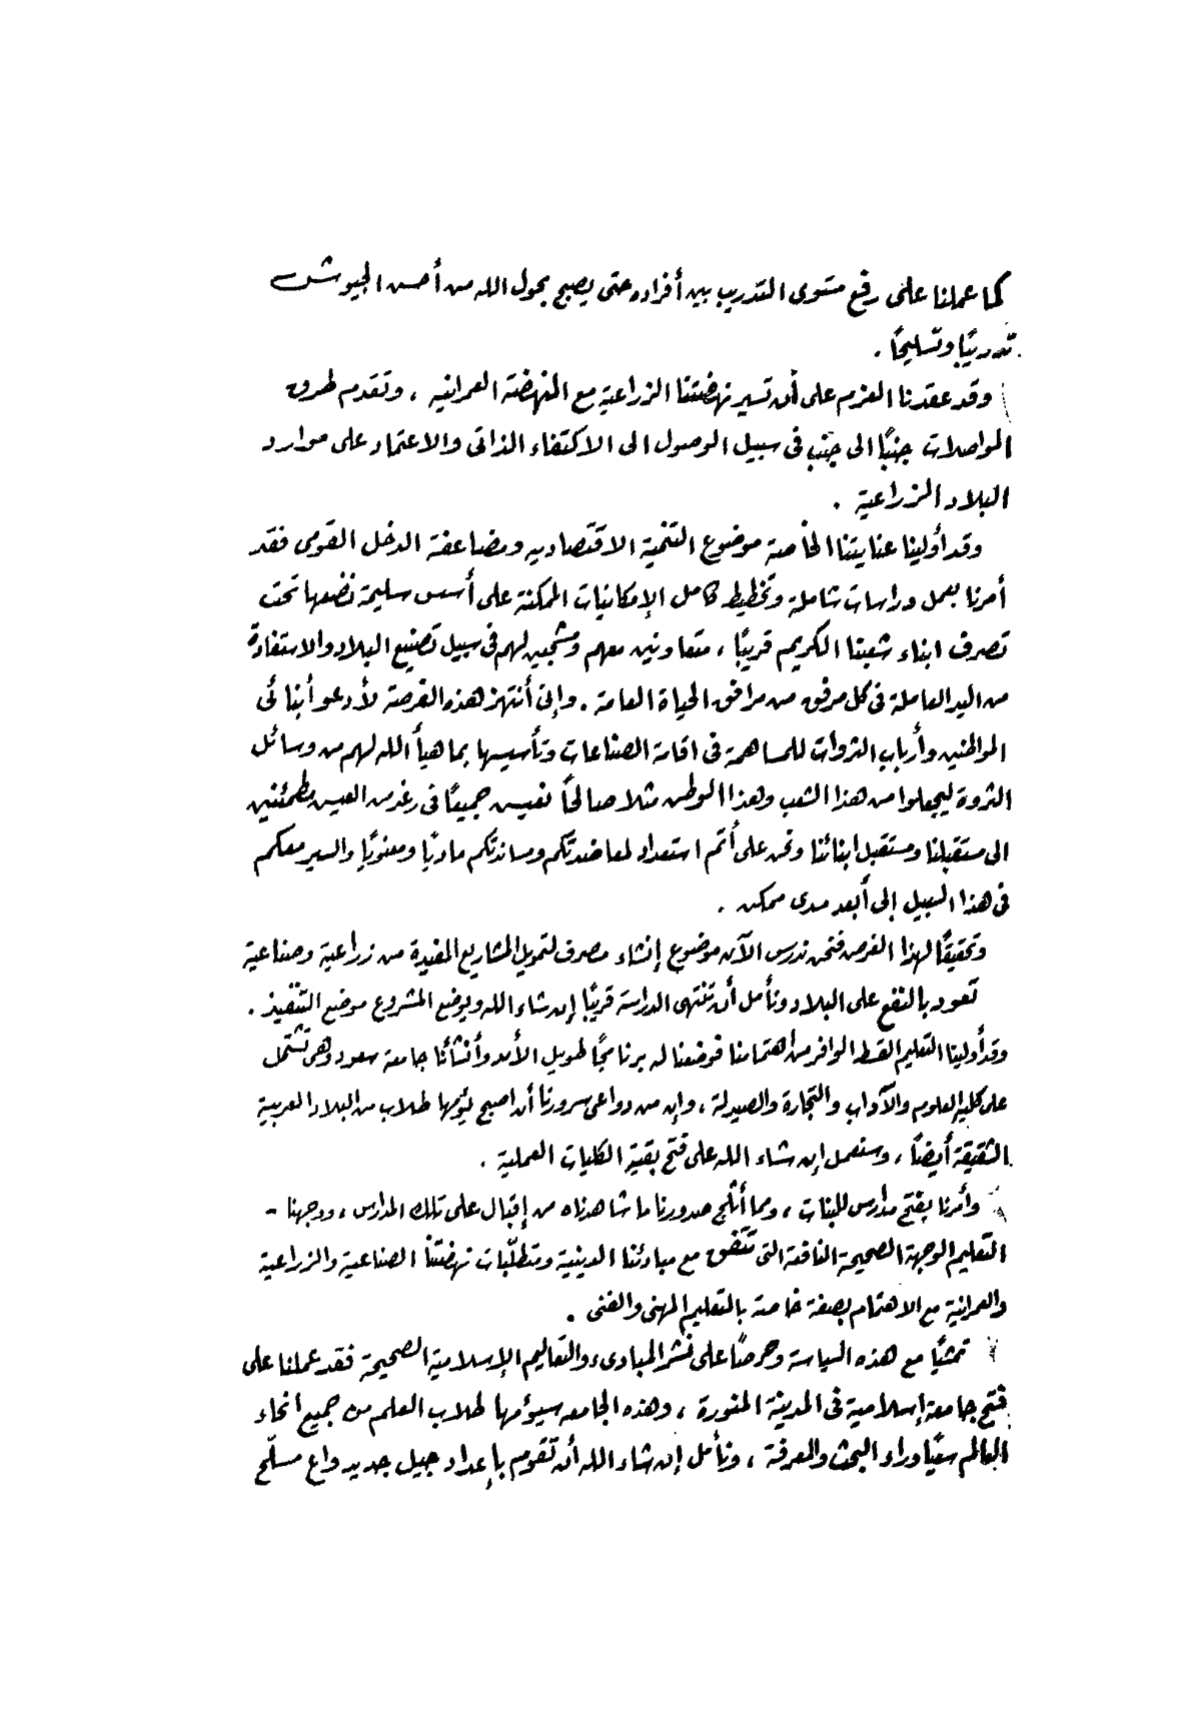 كما عملنا على رفع مستوى التدريب بين أفراده حتى يصبح بحول الله من أحسن الجيوش
تدريبًا وتسليحًا .
وقد عقدنا العزم على أن تسير نهضتنا الزراعية مع النهضة العمرانية ، وتقدم طرق
المواصلات جنبًا الى جنب فى سبيل الوصول الى الاكتفاء الذاتى والاعتماد على موارد
البلاد الزراعية .
وقد أولينا عنايتنا الخاصة موضوع التنمية الاقتصادية ومضاعفة الدخل القومى فقد
أمرنا بعمل دراسات شاملة وتخطيط كامل الإمكانيات الممكنة على أسس سليمة نضعها تحت
تصرف ابناء شعبنا الكريم قريبًا ، متعاونين معهم ومشجعين لهم فى سبيل تصنيع البلاد والاستفادة
من اليد العاملة فى كل مرفق من مرافق الحياة العامة . وإنى أنتهز هذه الفرصة لأدعو أبنائى
المواطنين وأرباب الثروات للمساهمة فى اقامة الصناعات وتأسيسها بما هيأ الله لهم من وسائل
الثروة ليجعلوا من هذا الشعب وهذا الوطن مثلا صالحًا نعيش جميعًا فى رغد من العيش مطمئنين
الى مستقبلنا ومستقبل ابنائنا ونحن على أتم استعداد لمعاضدتكم ومساندتكم ماديًا ومعنويًا والسير معكم
فى هذا السبيل إلى أبعد مدى ممكن .
وتحقيقًا لهذا الغرض فنحن ندرس الآن موضوع إنشاء مصرف لتمويل المشاريع المفيدة من زراعية وصناعية
تعود بالنفع على البلاد ونأمل أن تنتهى الدراسة قريبًا إن شاء الله ويوضع المشروع موضع التنفيذ .
وقد أولينا التعليم القسط الوافر من أهتمامنا فوضعنا له برنامجًا طويل الأمد وأنشأنا جامعة سعود وهى تشتمل
على كلية العلوم والآداب والتجارة والصيدلة ، وإن من دواعى سرورنا أن اصبح يؤمها طلاب من البلاد العربية
الشقيقة أيضًا ، وسنعمل إن شاء الله على فتح بقية الكليات العملية .
وأمرنا بفتح مدارس للبنات ، ومما أثلج صدورنا ما شاهدناه من إقبال على تلك المدارس ، ووجهنا -
التعليم الوجهة الصحيحة النافعة التى تتفق مع مبادئنا الدينية ومتطلّبات نهضتنا الصناعية والزراعية
والعمرانية مع الاهتمام بصفة خاصة بالتعليم المهنى والفنى .
تمشيًا مع هذه السياسة وحرصًا على نشر المبادىء والتعاليم الإسلامية الصحيحة فقد عملنا على
فتح جامعة إسلامية فى المدينة المنورة ، وهذه الجامعه سيؤمها طلاب العلم من جميع انحاء
العالم سعيًا وراء البحث والمعرفة ، ونأمل إن شاء الله أن تقوم بإعداد جيل جديد واع مسلّح